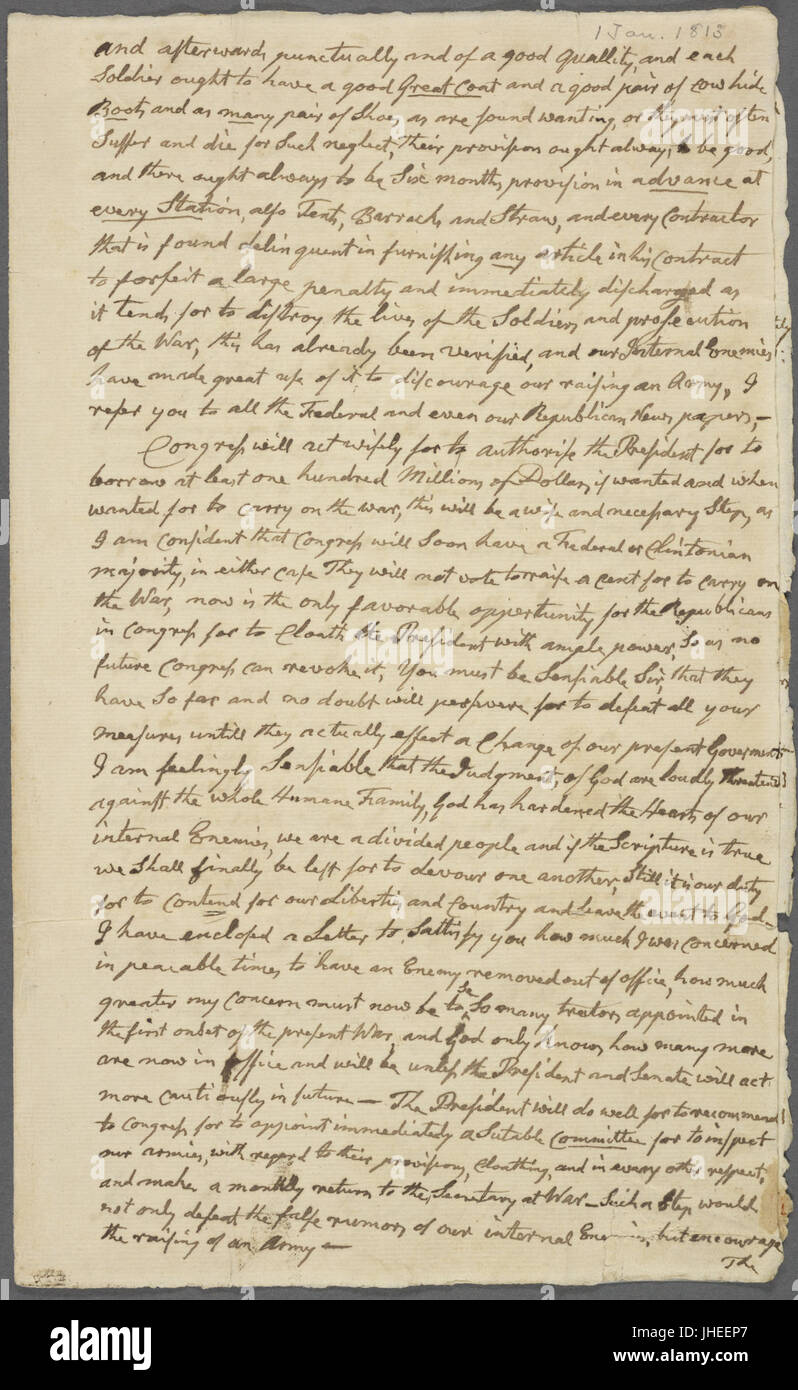 1 Jan. 1813
and afterwards punctually and of a good quallity, and each
Soldier ought to have a good Great Coat and a good pair of cow hide
Boots and as many pair of Shoes as are found wanting, or they must often
Suffer and die for such neglect, Their provision ought always to be good,
and there ought always to be Six months provision in advance at
every Station, also Tents, Barracks and Straw, and every Contractor
that is found delinquent in furnishing any article in his Contract
to forfeit a large penalty and immediately discharged as
it tends for to distroy the lives of the Soldiers and prosecution
of the War, this has already been verified, and our Internal Enemies
have made great use of it to discourage our raising an Army, I
refer you to all the Federal and even our Republican News papers,—
Congress will act wisely for to authorise the President for to
borrow at least one hundred Millions of Dollars if wanted and when
wanted for to carry on the war, this will be a wise and necessary Step, as
I am confident that Congress will soon have a Federal or Clintonian
majority, in either case They will not vote to raise a cent for to carry on
the War, now is the only favorable opportunity for the Republicans
in Congress for to Cloath the President with ample power, So as no
future Congress can revoke it, You must be Sensiable Sir, that they
have so far and no doubt will persevere for to defeat all your
measures untill they actually effect a Change of our present Goverment
I am feelingly Sensiable that the Judgments of God are loudly threatened
against the whole Humane Family, God has hardened the Hearts of our
internal Enemies, we are a divided people and if the Scripture is true
we Shall finally be left for to devour one another, Still it is our duty
for to contend for our Liberties and Country and Leave the event to God—
I have enclosed a Letter to Sattisfy you how much I was concerned
in peacable times to have an Enemy removed out of office, how much
greater my concern must now be to se So many traitors appointed in
the first onset of the present War, and God only knows how many more
are now in office and will be unless the President and Senate will act
more cautiously in future — The President will do well for to recommend
to Congress for to appoint immediately a Sutable Committee for to inspect
our armies, with regard to their provisions, Cloathing, and in every other respect,
and make a monthly return to the Secretary at War — Such a Step would
not only defeat the false rumors of our internal Enemies, but encourage
the raising of an Army —
The
alamy stock photo
JHEEP7
www.alamy.com